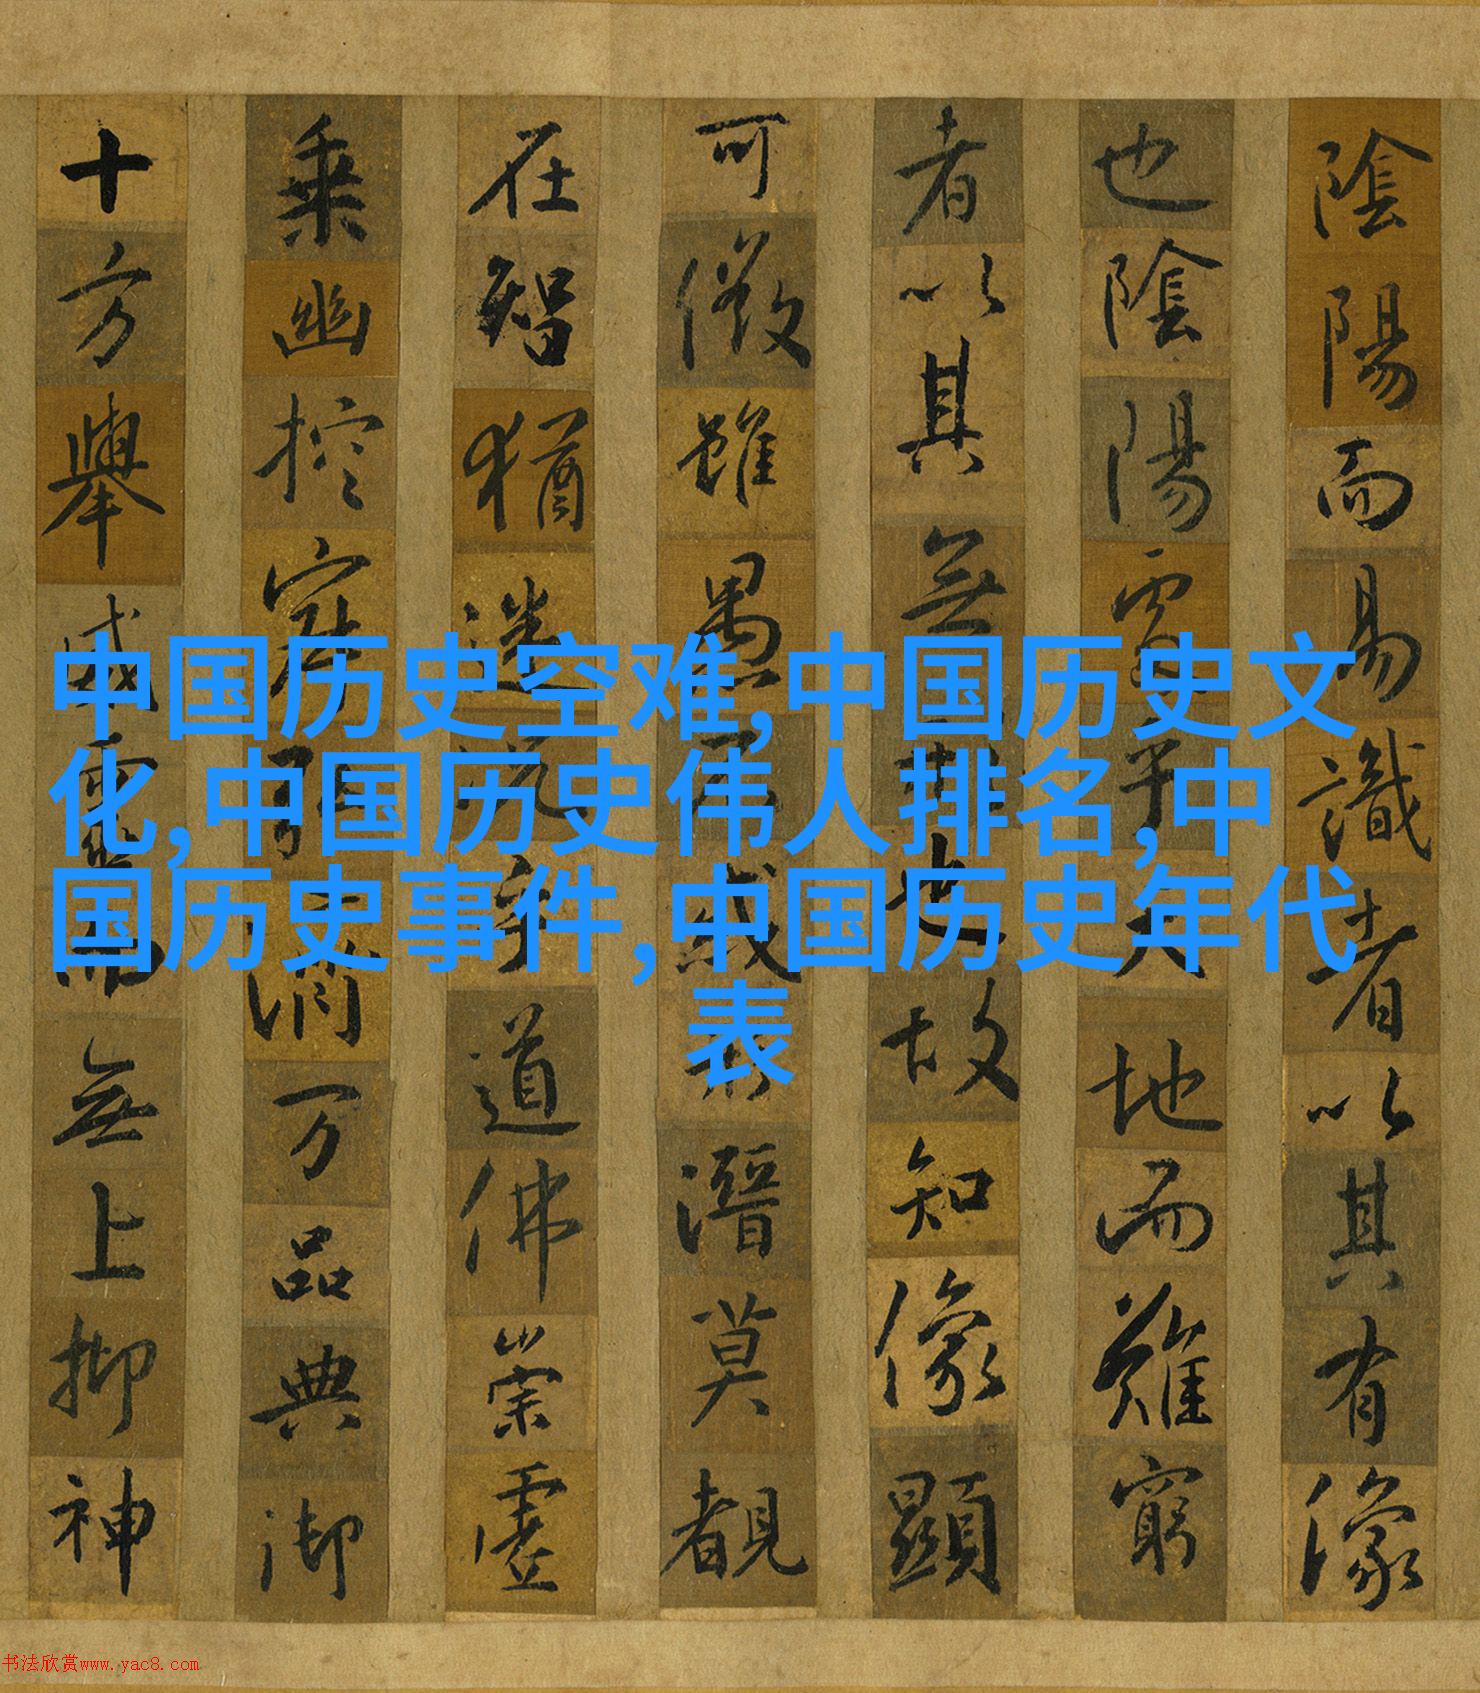 陰陽而易識者以其有像
也陰陽處乎天地而難窮
者以其無形也故知像顯
可徵雖愚不惑形潛莫覩
在智猶迷況乎道佛崇虛
乘幽控寂弘濟万品典御
十方舉威靈而無上抑神
中国历史空难,中国历史文
化,中国历史伟人排名,中
国历史事件,中国历史年代
表
书法欣赏www.yac8.com